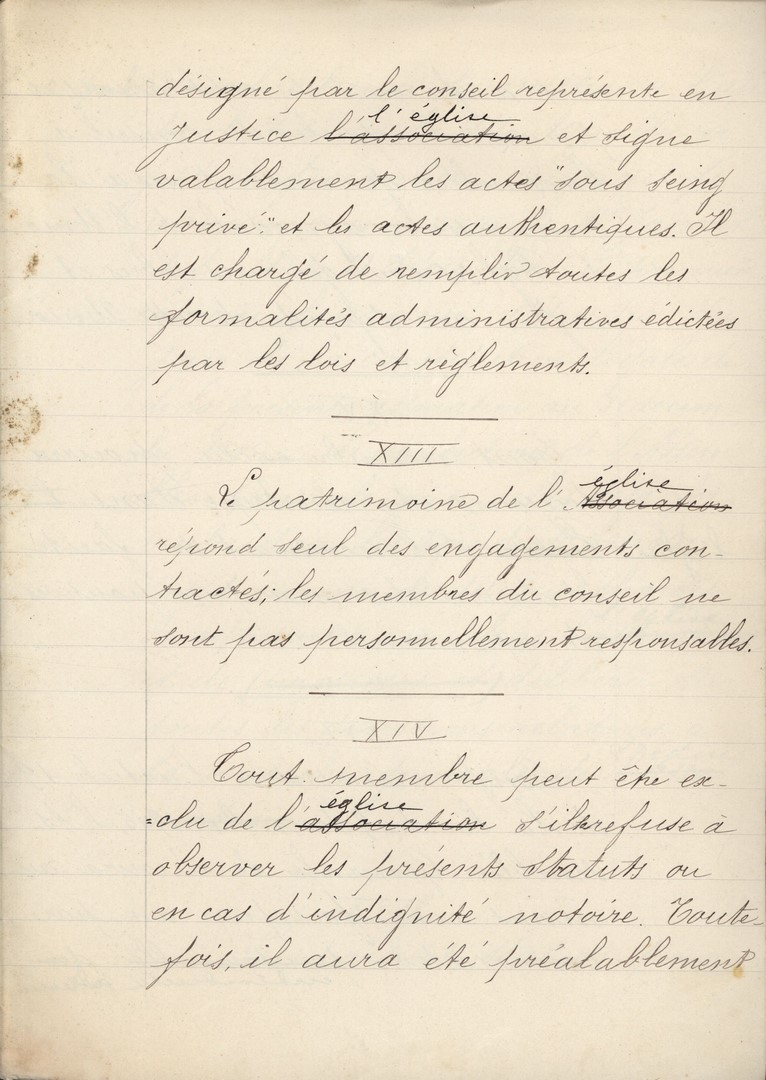 désigné par le conseil représente en
l'église
Justice l'association et signe
valablement les actes "sous seing
privé" et les actes authentiques. Il
est chargé de remplir toutes les
formalités administratives édictées
par les lois et règlements.
XIII
église
Le patrimoine de l'Association
répond seul des engagements con-
tractés; les membres du conseil ne
sont pas personnellement responsables.
XIV
Tout membre peut être ex-
église
=clu de l'association s'il refuse à
observer les présents Statuts ou
en cas d'indignité notoire. Toute-
fois, il aura été préalablement